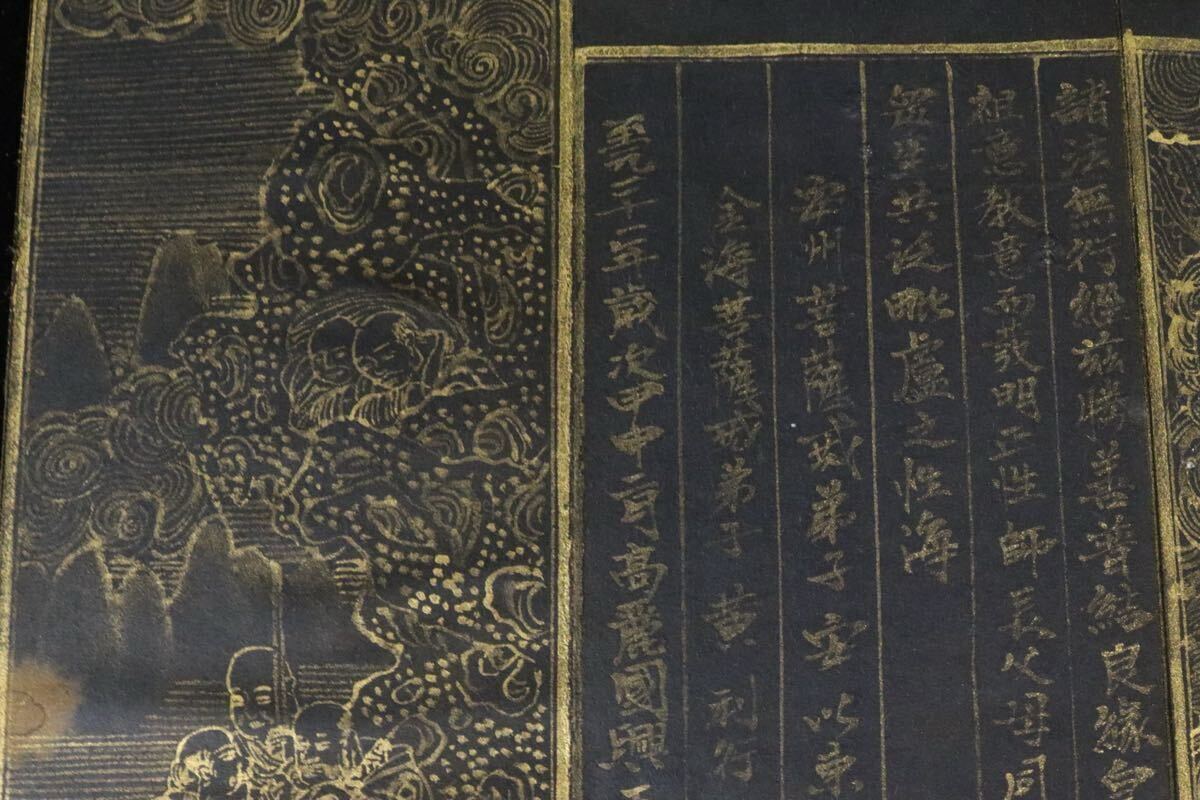 諸法無行繇茲勝善普結良緣自
祖意教意而發明工性師長父母同
營生共泛毗盧之性海
宰州菩薩戒弟子安以東
金海菩薩戒弟子黃利行
至元二十年歲次甲申高麗國興王